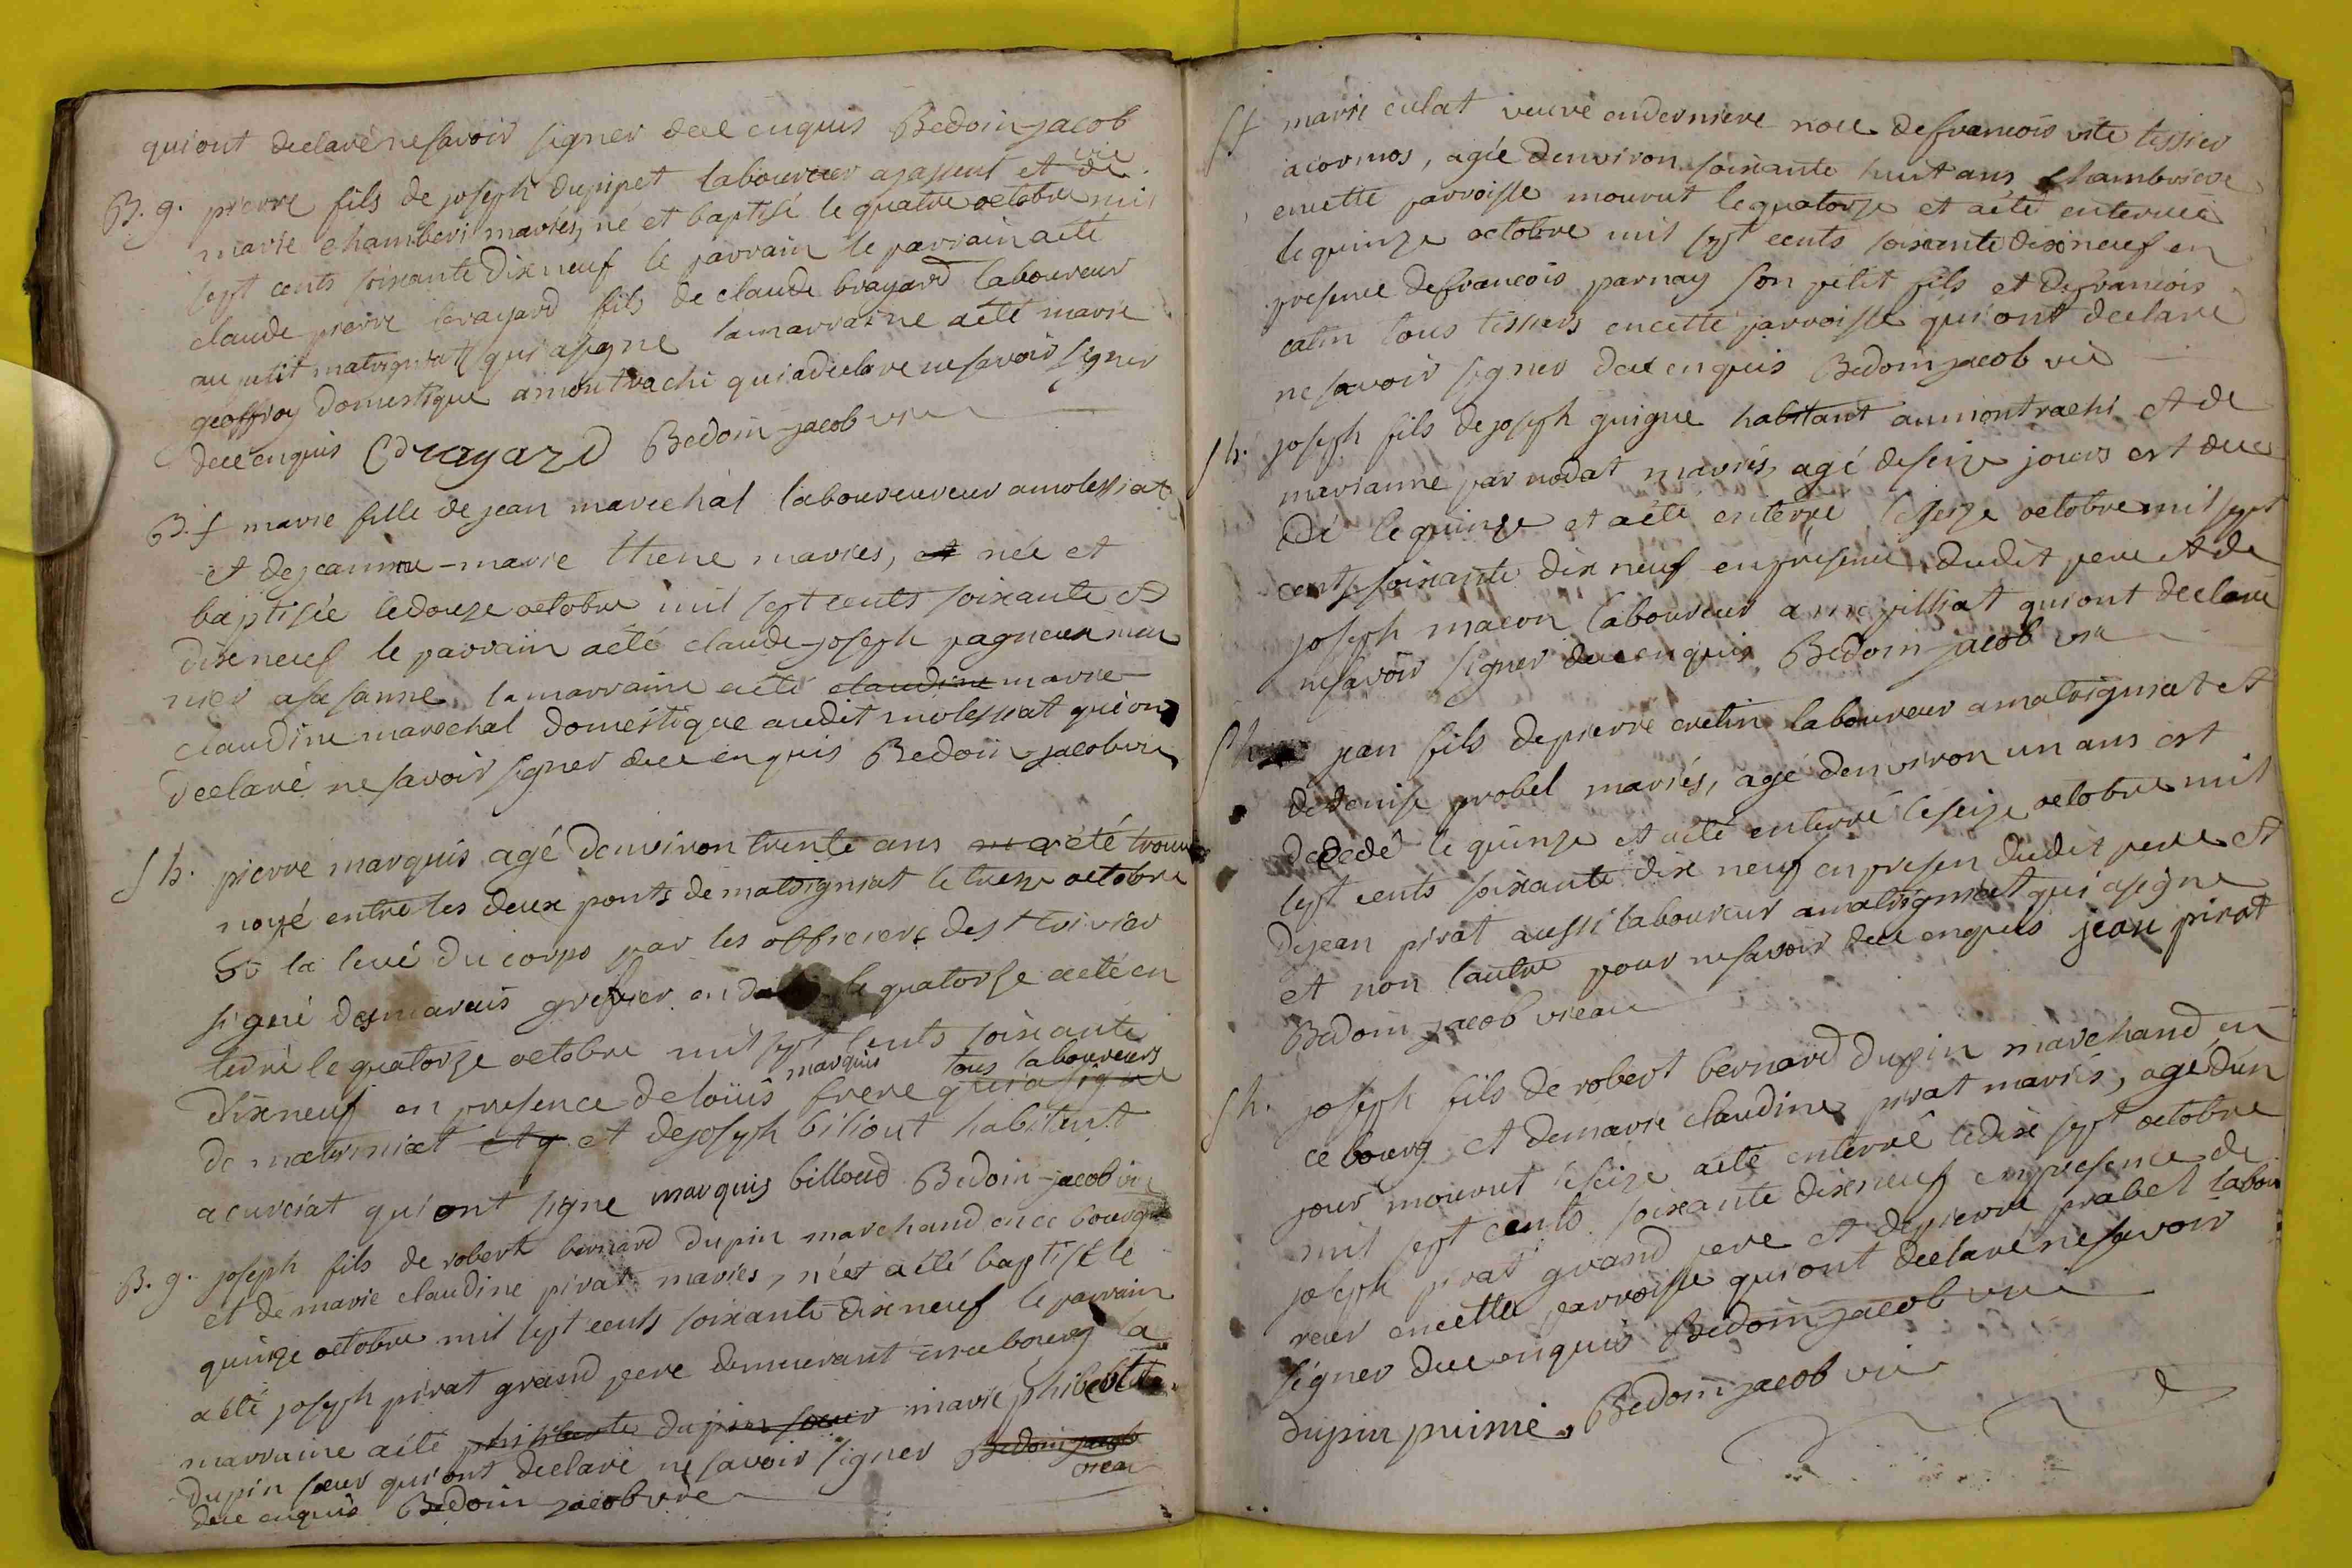 qui ont declaré ne savoir signer deue enquis Bedoin-jacob
vic
B. g. pierre fils de joseph dupipet laboureur a jasseus et de
marie chamberi mariés, né et baptisé le quatre octobre mil
sept cents soixante dix neuf le parrain le parrain a été
claude pierre brayard fils de claude brayard laboureur
au petit malvigniat qui a signe la marraine a été marie
geoffroy domestique a montrachi qui a declare ne savoir signer
deue enquis Cbrayard Bedoin-jacob vic
B. f marie fille de jean marechal laboureureur a molessiat
et de jeanne-marie thene maries, et née et
baptisée le douze octobre mil sept cents soixante et
dix neuf le parrain a été claude-joseph pagneux meu
nier a sesanne la marraine a été claudine marie
claudine marechal domestique audit molessiat qui on
declaré ne savoir signer deue enquis Bedoin-jacob vic
S h. pierre marquis agé denviron trente ans a été trouvé
noyé entre les deux ponts de malvigniat le treze octobre
et la levé du corps par les officiers de st trivier
signé desmarais grefier en da le quatorse a été en
terré le quatorze octobre mil sept cents soixante
dix neuf en presence de loüis marquis frere qui a signe tous laboureurs
de malvigniat et q et de joseph biliout habitant
a curciat qui ont signe marquis billoud Bedoin-jacob vic
B. g. joseph fils de robert bernard dupin marchand en ce bourg
et de marie claudine pirat maries, né et a été baptisé le
quinze octobre mil sept cents soixante-dix neuf le parrain
a été joseph pirat grand pere demeurant en ce bourg la
marraine a été philiberte dupin soeur marie philiberte
dupin soeur qui ont declaré ne savoir signer Bedoin jacob
vicai
deue enquis Bedoin jacob vic
S f marie culat veuve en derniere noce de francois vite tissier
a cormos, agée denviron soixante huit ans chambriere
en cette parroisse mourut le quatorze et a été enterrée
le quinze octobre mil sept cents soixante dix neuf en
presence de francois parnay son petit fils et de francois
catin tous tissiers en cette parroisse qui ont declare
ne savoir signer deue enquis Bedoin jacob vic
S h. joseph fils de joseph guigue habitant au montrachi et de
marianne par nodat mariés, agé de seize jours est dece
dé le quinze et a été enterré le seize octobre mil sept
cents soixante dix neuf en présence dudit pere et de
joseph macon laboureur a une pilliat qui ont declaré
ne savoir signer deue enquis Bedoin-jacob vic
S h jean fils de pierre cretin laboureur a malvigniat et
de denise probel mariés, agé denviron un ans est
decedé le quinze et a été enterré le seize octobre mil
sept cents soixante dix neuf en presen dudit pere et
de jean pirat aussi laboureur a malvigniat qui a signe
et non lautre pour ne savoir deue enquis jean pirat
Bedoin jacob vicaire
S h. joseph fils de robert bernard dupin marchand en
ce bourg et de marie claudine pirat mariés, agé dun
jour mourut le seize a été enterré le dix sept octobre
mil sept cents soixante dix neuf en presence de
joseph pirat grand pere et de pierre prabel labou
reur en cette parroisse qui ont declaré ne savoir
signer deue enquis Bedoin jacob vic
dupin prime. Bedoin jacob vic